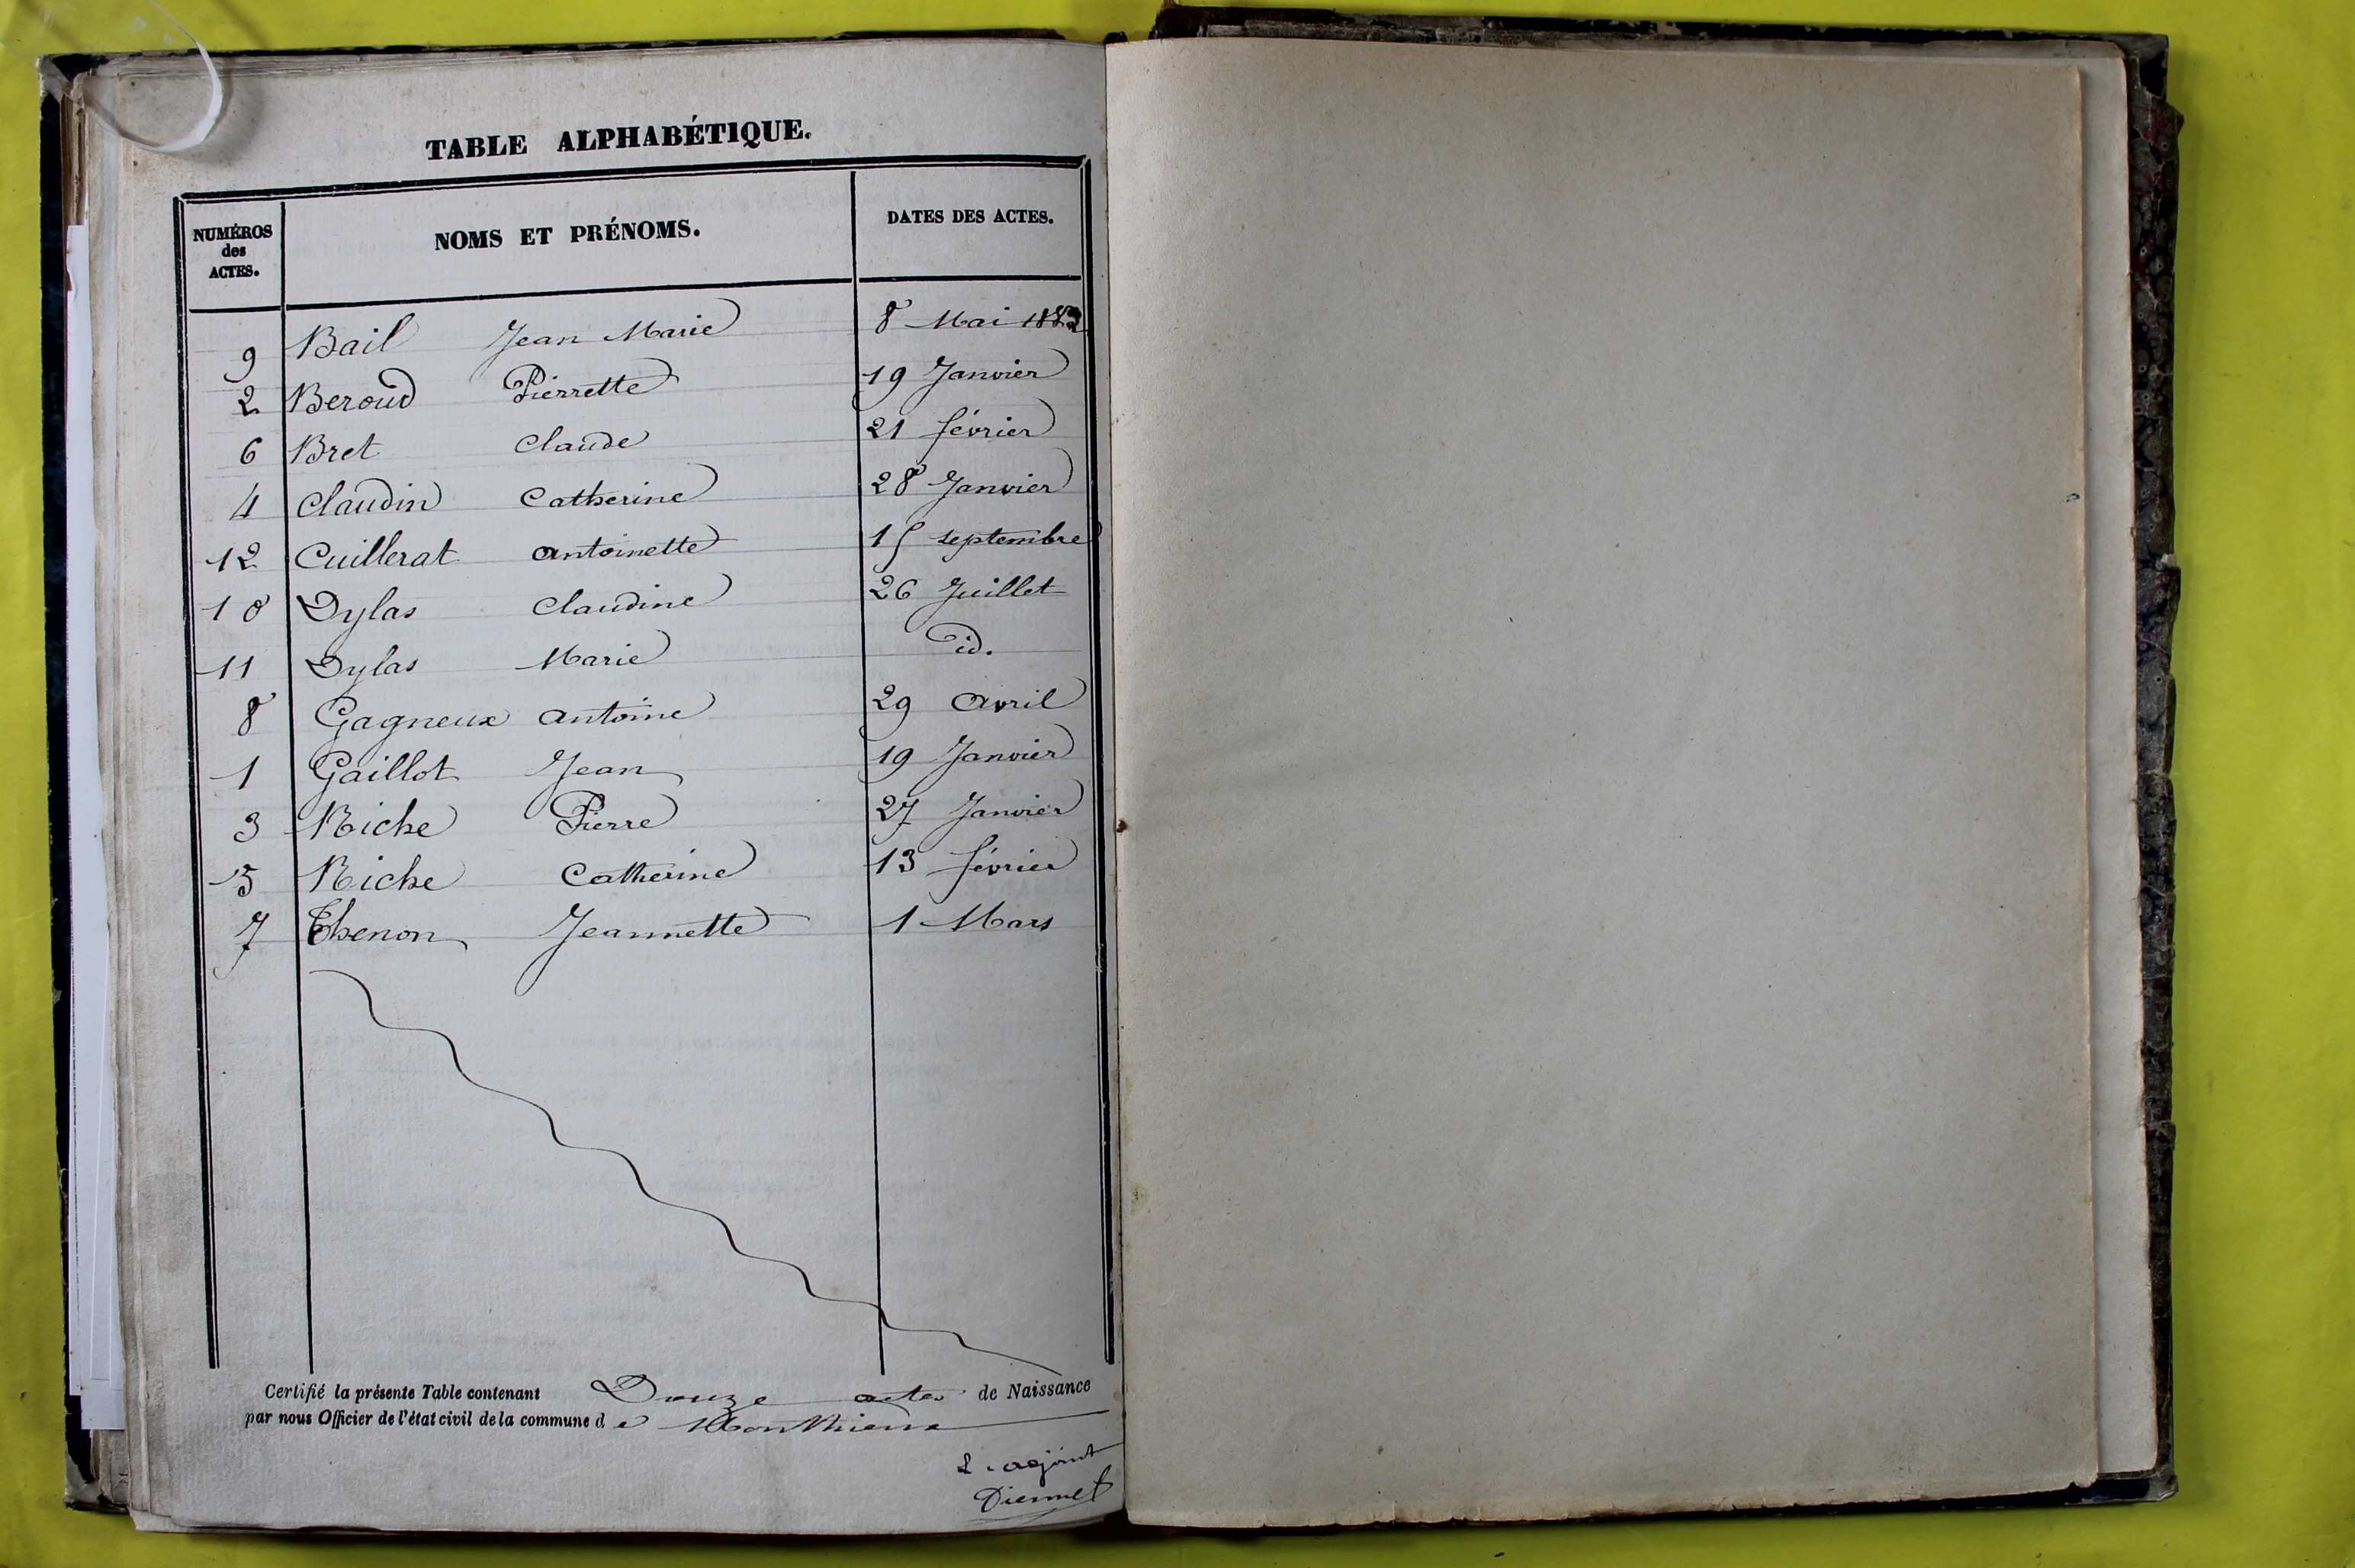 TABLE ALPHABÉTIQUE.
NUMÉROS des ACTES. NOMS ET PRÉNOMS. DATES DES ACTES.
9 Bail Jean Marie 8 Mai 1882
2 Beroud Pierrette 19 Janvier
6 Bret Claude 21 février
4 Claudin Catherine 28 Janvier
12 Cuillerat Antoinette 15 septembre
10 Dylas Claudine 26 Juillet
11 Dylas Marie id.
8 Gagneux Antoine 29 Avril
1 Gaillot Jean 19 Janvier
3 Riche Pierre 27 Janvier
5 Riche Catherine 13 février
7 Thenon Jeannette 1 Mars
Certifié la présente Table contenant Douze actes de Naissance
par nous Officier de l'état civil de la commune de Monthieux
L'adjoint